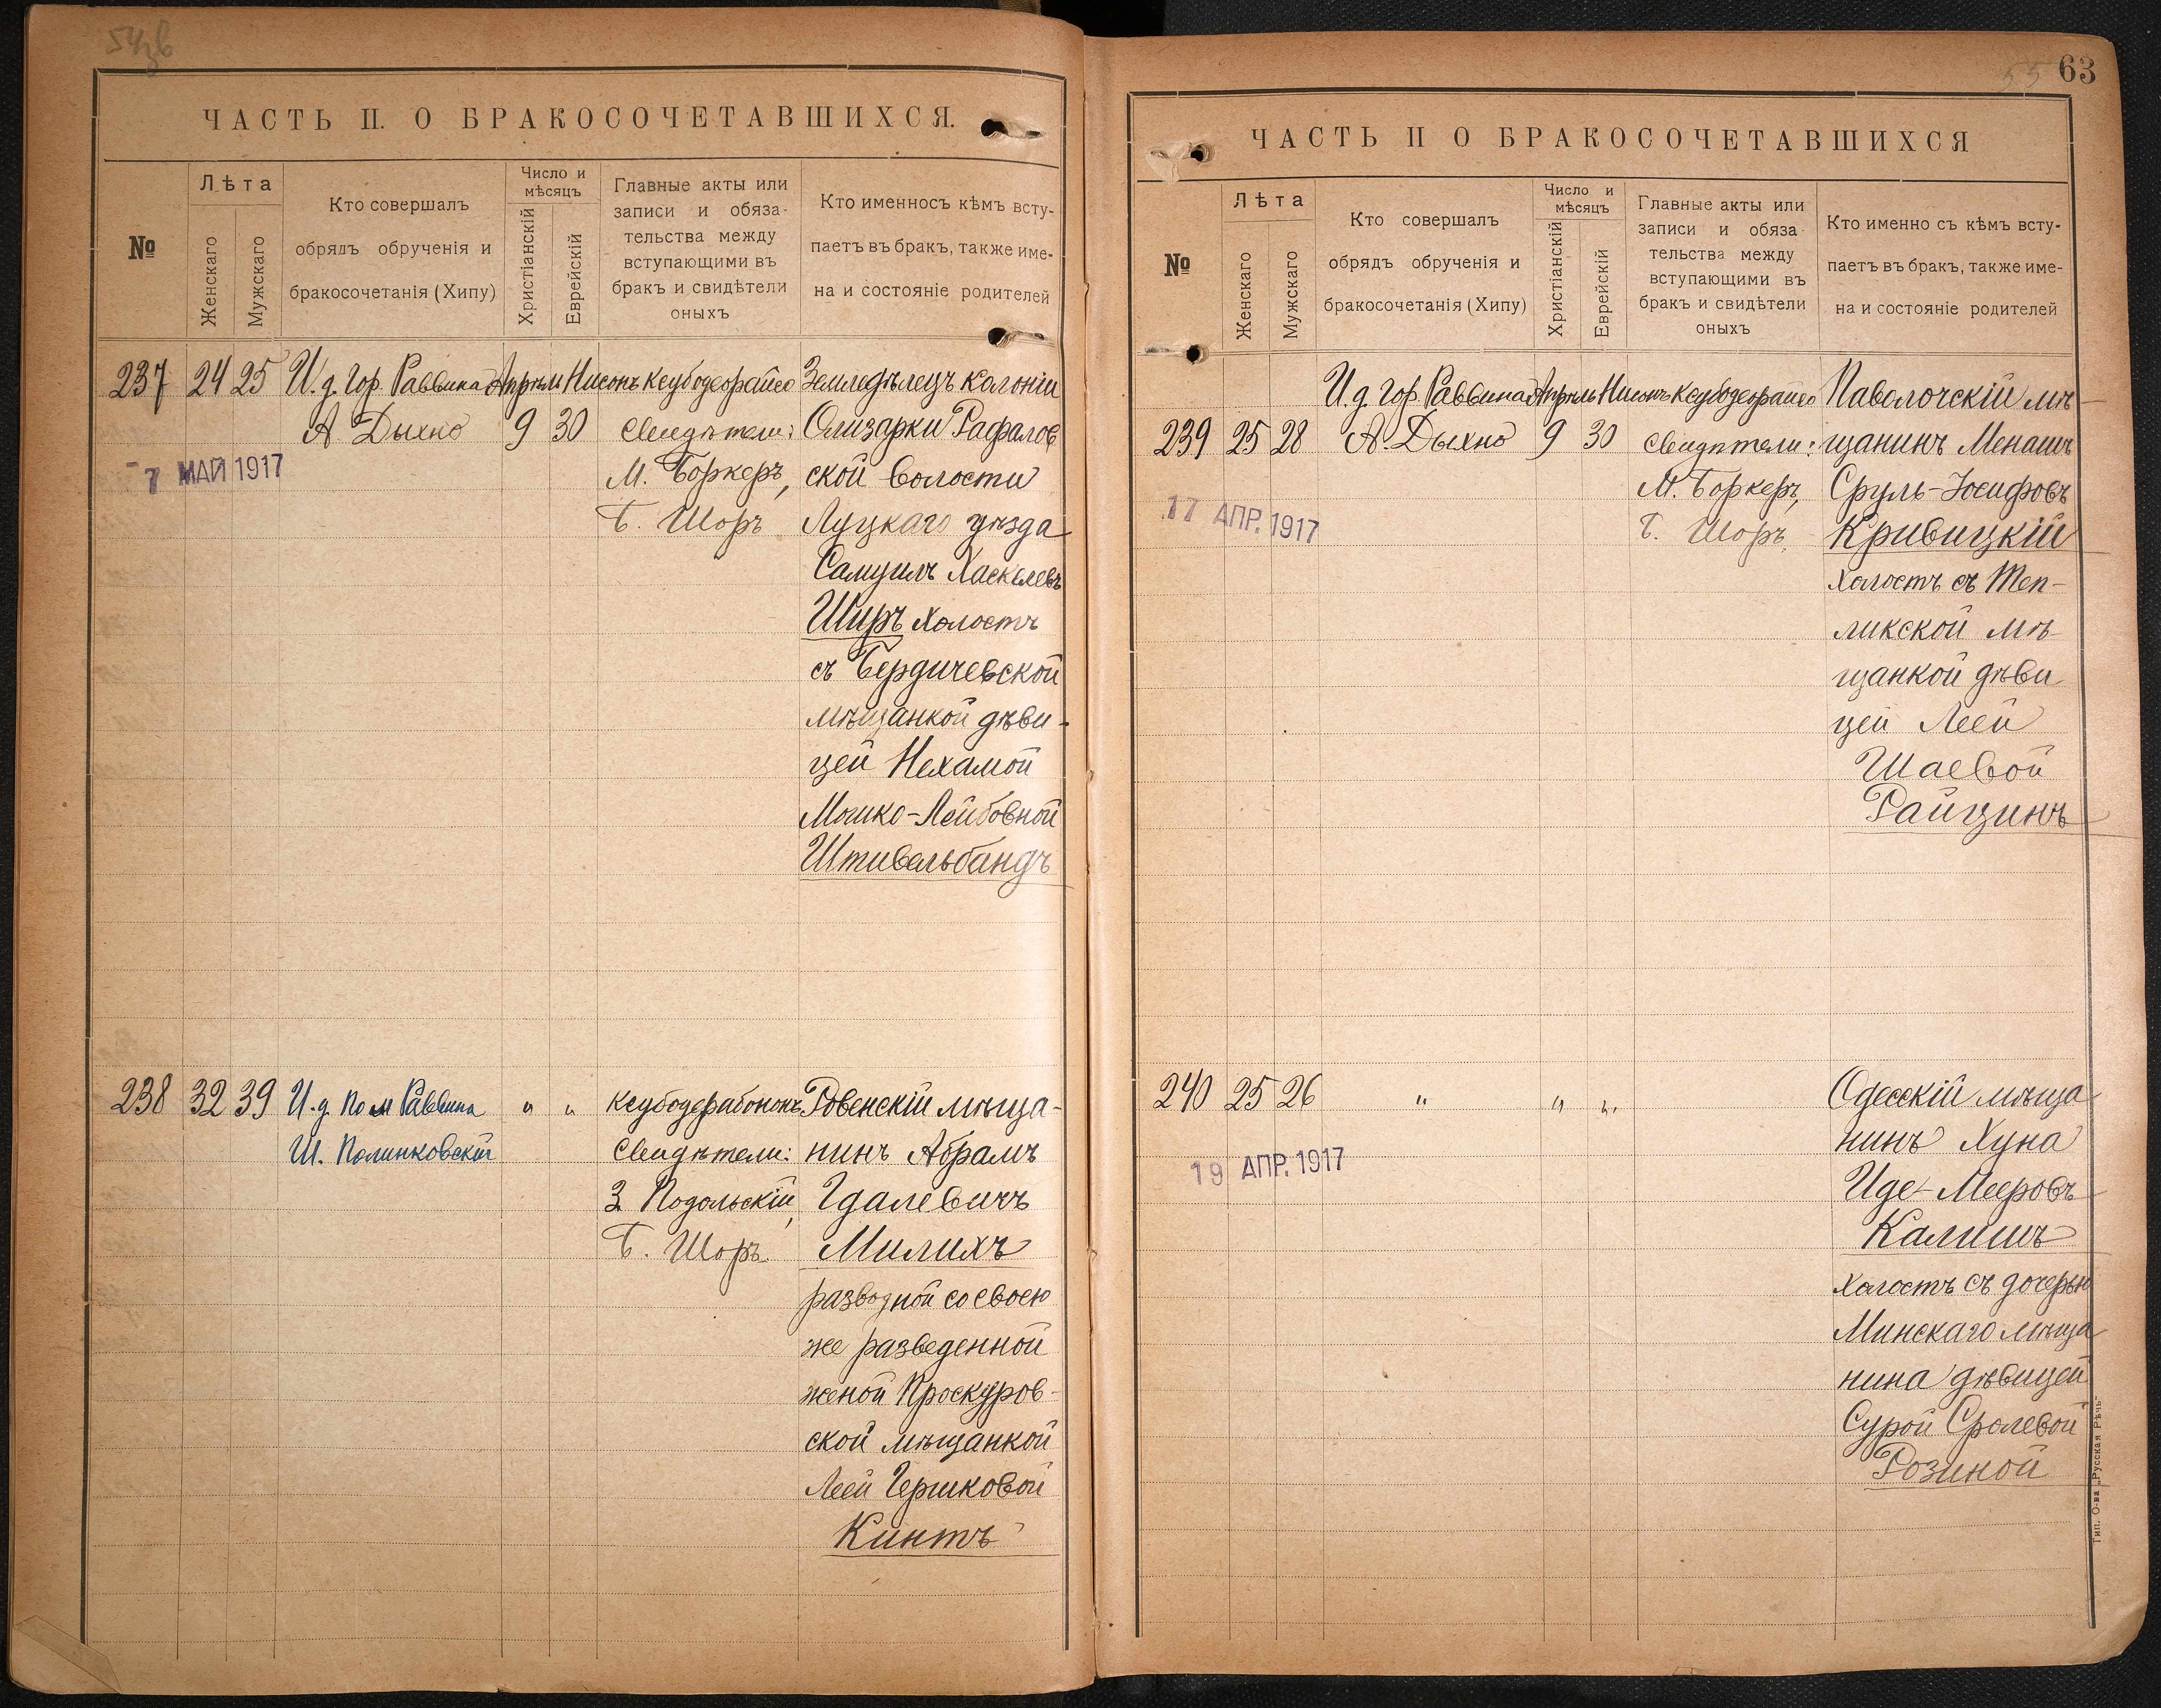 ЧАСТЬ II. О БРАКОСОЧЕТАВШИХСЯ.
№
Лѣта
Женскаго
Мужскаго
Кто совершалъ
обрядъ обрученія и
бракосочетанія (Хипу)
Число и
мѣсяцъ
Христіанскій
Еврейскій
Главные акты или
записи и обяза-
тельства между
вступающими въ
бракъ и свидѣтели
оныхъ
Кто именносъ кѣмъ всту-
паетъ въ бракъ, также име-
на и состояніе родителей
237
24
25
И. д. Гор. Раввина
А Дыхно
Апрѣль
9
Нисонъ
30
Ксубодеорайсо
Свидѣтели:
М. Боркеръ,
Б. Шоръ
Земледѣлецъ колоніи
Олизарки Рафалов
ской волости
Луцкаго уѣзда
Самуилъ Хаскелевъ
Ширъ холостъ
съ Бердичевской
мѣщанкой дѣви-
цей Нехамой
Мошко-Лейбовной
Штивельбандъ
7 МАЙ 1917
238
32
39
И. д. Пом Раввина
Ш. Полинковскій
"
"
Ксубодерабононъ
Свидѣтели:
З Подольскій,
Б. Шоръ.
Ровенскій мѣща-
нинъ Абрамъ
Гдалевичъ
Милихъ
разводной со своею
же разведенной
женой Проскуров-
ской мѣщанкой
Леей Гершковой
Кинтъ
63
55
ЧАСТЬ II О БРАКОСОЧЕТАВШИХСЯ
№
Лѣта
Женскаго
Мужскаго
Кто совершалъ
обрядъ обрученія и
бракосочетанія (Хипу)
Число и
мѣсяцъ
Христіанскій
Еврейскій
Главные акты или
записи и обяза
тельства между
вступающими въ
бракъ и свидѣтели
оныхъ
Кто именно съ кѣмъ всту-
паетъ въ бракъ, также име-
на и состояніе родителей
239
25
28
И. д. Гор. Раввина
А. Дыхно
Апрѣль
9
Нисонъ
30
Ксубодеорайсо
Свидѣтели:
М. Боркеръ,
Б. Шоръ.
Паволочскій мѣ-
щанинъ Менашъ
Сруль-Іосифовъ
Кривицкій
холостъ съ Теп-
ликской мѣ-
щанкой дѣви
цей Леей
Шаевой
Райцинъ
17 АПР. 1917
240
25
26
"
"
"
Одесскій мѣща
нинъ Хуна
Иде-Мееровъ
Калишъ
холостъ съ дочерью
Минскаго мѣща
нина дѣвицей
Сурой Сролевой
Розиной
19 АПР. 1917
Тип. О-ва „Русская Рѣчь“